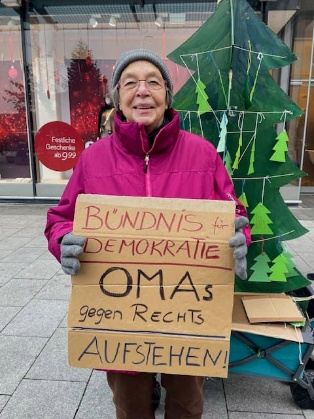 Festliche
Geschenke
ab 9.99
BÜNDNIS für
DEMOKRATIE
OMAs
gegen RECHTS
AUFSTEHEN!